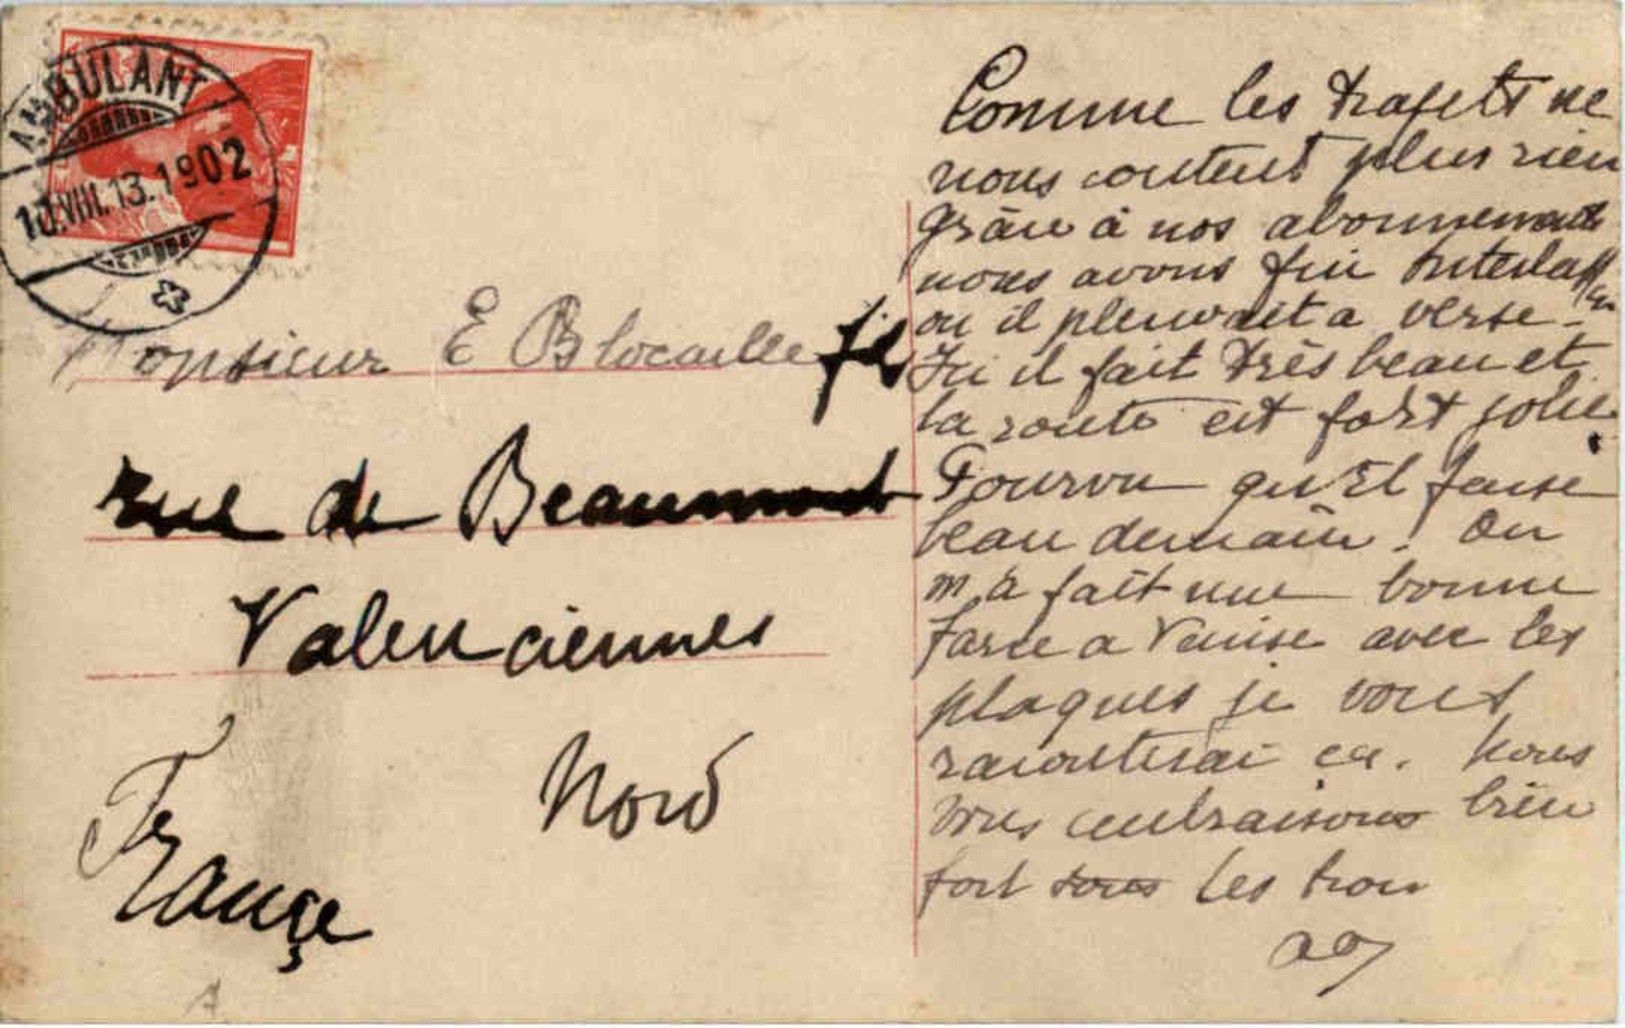 AMBULANT
10.VIII.13.1902
Monsieur E Blocaille fils
rue de Beaumont
Valenciennes
Nord
France
Comme les trajets ne
nous coutent plus rien
grâce à nos abonnements
nous avons fui Interlaken
ou il pleuvait a verse.
Ici il fait très beau et
la route est fort jolie.
Pourvu qu'il fasse
beau demain! On
m'a fait une bonne
farce a Venise avec les
plaques je vous
raconterai ca. Nous
vous embrassons bien
fort tous les trois